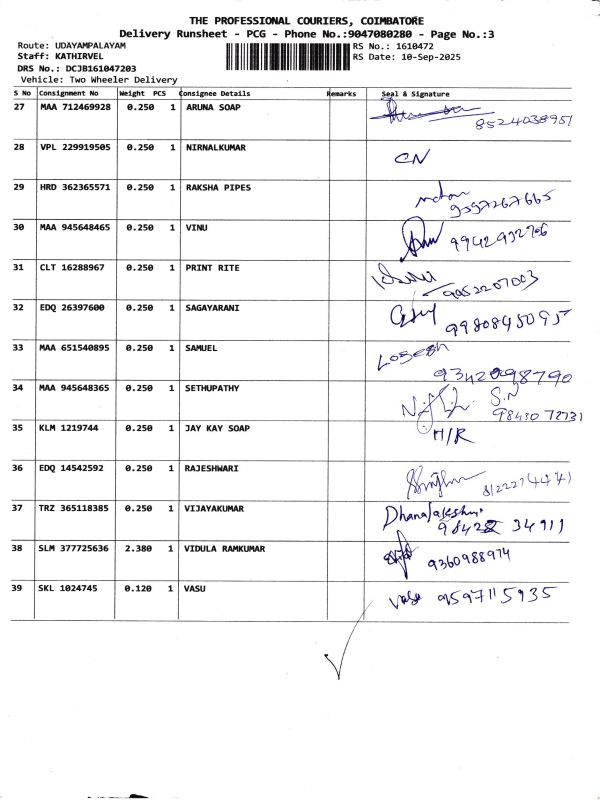 THE PROFESSIONAL COURIERS, COIMBATORE
Delivery Runsheet - PCG - Phone No.:9047080280 - Page No.:3
Route: UDAYAMPALAYAM RS No.: 1610472
Staff: KATHIRVEL RS Date: 10-Sep-2025
DRS No.: DCJB161047203
Vehicle: Two Wheeler Delivery
S No Consignment No Weight PCS Consignee Details Remarks Seal & Signature
27 MAA 712469928 0.250 1 ARUNA SOAP
8524038951
28 VPL 229919505 0.250 1 NIRNALKUMAR
CN
29 HRD 362365571 0.250 1 RAKSHA PIPES
30 MAA 945648465 0.250 1 VINU
31 CLT 16288967 0.250 1 PRINT RITE
9952207003
32 EDQ 26397600 0.250 1 SAGAYARANI
9980845095
33 MAA 651540895 0.250 1 SAMUEL
Logesh
9342098790
34 MAA 945648365 0.250 1 SETHUPATHY
S.N
9843072731
35 KLM 1219744 0.250 1 JAY KAY SOAP
H/R
36 EDQ 14542592 0.250 1 RAJESHWARI
37 TRZ 365118385 0.250 1 VIJAYAKUMAR
Dhanalakshmi
98422 34911
38 SLM 377725636 2.380 1 VIDULA RAMKUMAR
9360988974
39 SKL 1024745 0.120 1 VASU
vasu 9597115935